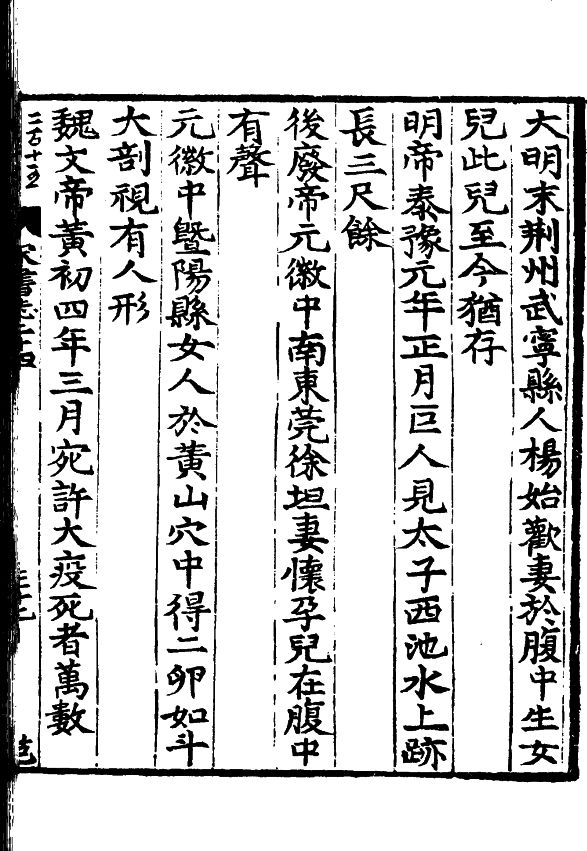 大明末荆州武寧縣人楊始歡妻於腹中生女
兒此兒至今猶存
明帝泰豫元年正月巨人見太子西池水上跡
長三尺餘
後廢帝元徽中南東莞徐坦妻懷孕兒在腹中
有聲
元徽中曁陽縣女人於黃山穴中得二卵如斗
大剖視有人形
魏文帝黃初四年三月宛許大疫死者萬數
二百十五
宋書志二十四